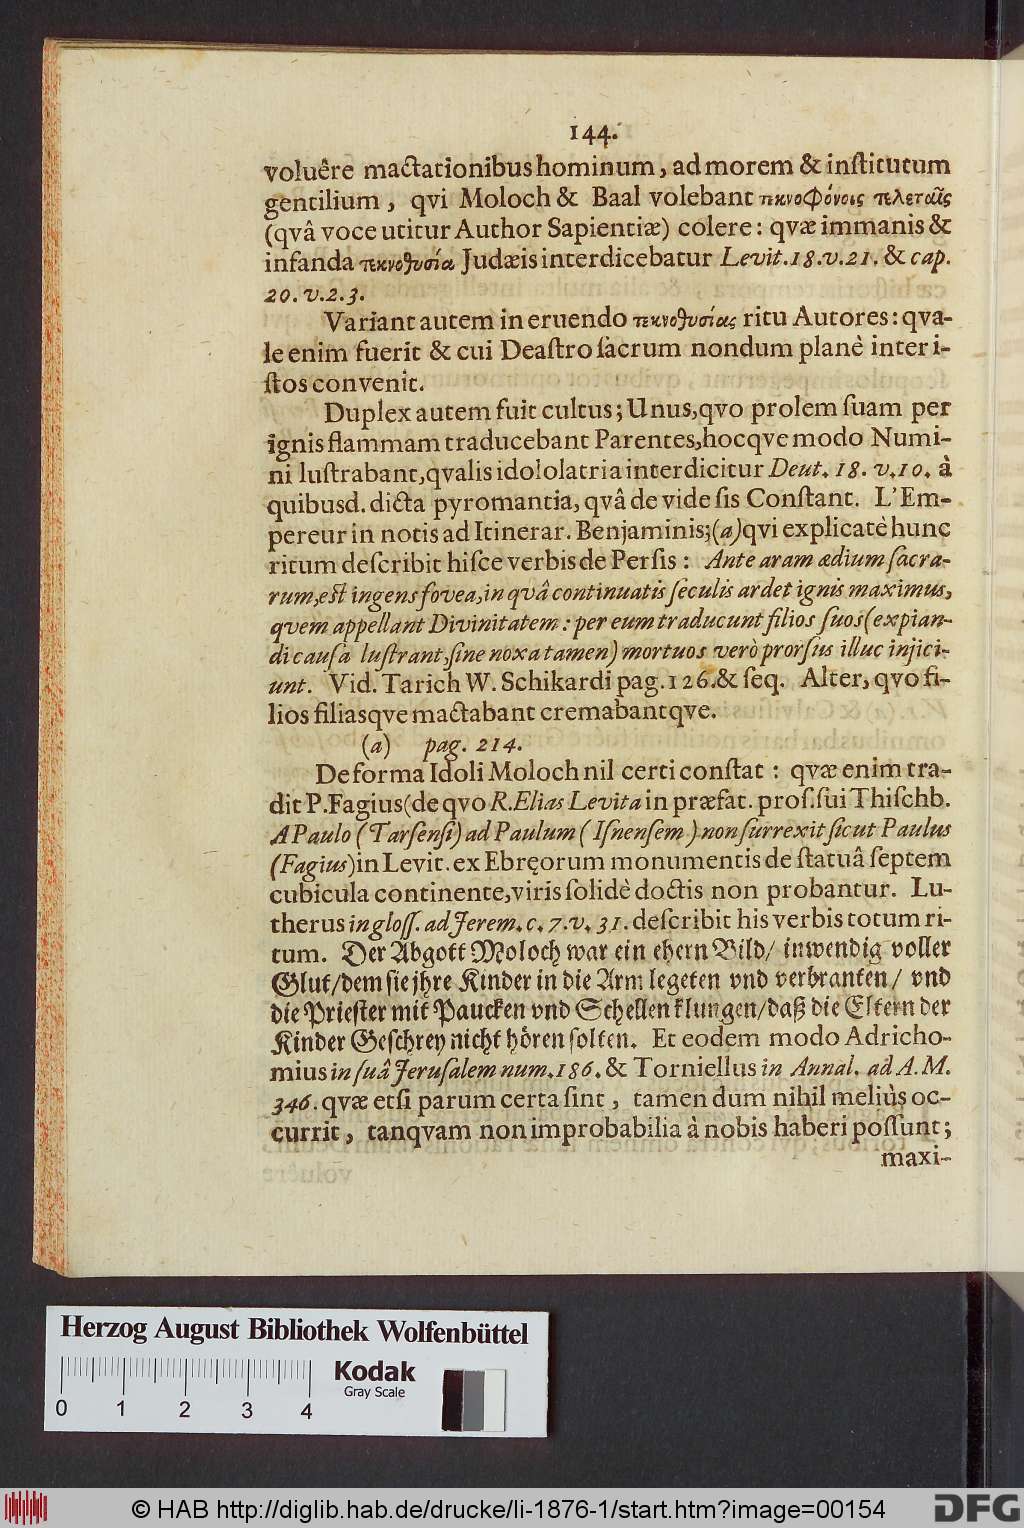 144.
voluêre mactationibus hominum, ad morem & inſtitutum
gentilium, qvi Moloch & Baal volebant τεκνοφόνοις τελεταῖς
(qvâ voce utitur Author Sapientiæ) colere: qvæ immanis &
infanda τεκνοθυσία Judæis interdicebatur Levit. 18. v. 21. & cap.
20. v. 2. 3.
Variant autem in eruendo τεκνοθυσίας ritu Autores: qva-
le enim fuerit & cui Deaſtro ſacrum nondum planè inter i-
ſtos convenit.
Duplex autem fuit cultus; Unus, qvo prolem ſuam per
ignis flammam traducebant Parentes, hocqve modo Numi-
ni luſtrabant, qvalis idololatria interdicitur Deut. 18. v. 10. à
quibusd. dicta pyromantia, qvâ de vide ſis Conſtant. L'Em-
pereur in notis ad Itinerar. Benjaminis; (a) qvi explicatè hunc
ritum deſcribit hiſce verbis de Perſis: Ante aram ædium ſacra-
rum, eſt ingens fovea, in qvâ continuatis ſeculis ardet ignis maximus,
qvem appellant Divinitatem: per eum traducunt filios ſuos (expian-
di cauſa luſtrant, ſine noxa tamen) mortuos verò prorſus illuc injici-
unt. Vid. Tarich W. Schikardi pag. 126. & ſeq. Alter, qvo fi-
lios filiasqve mactabant cremabantqve.
(a) pag. 214.
De forma Idoli Moloch nil certi conſtat: qvæ enim tra-
dit P. Fagius (de qvo R. Elias Levita in præfat. proſ. ſui Thiſchb.
A Paulo (Tarſenſi) ad Paulum (Iſnenſem) non ſurrexit ſicut Paulus
(Fagius) in Levit. ex Ebręorum monumentis de ſtatuâ ſeptem
cubicula continente, viris ſolidè doctis non probantur. Lu-
therus in gloſſ. ad Jerem. c. 7. v. 31. deſcribit his verbis totum ri-
tum. Der Abgott Moloch war ein ehern Bild/ inwendig voller
Glut/ dem ſie jhre Kinder in die Arm legeten vnd verbranten/ vnd
die Prieſter mit Paucken vnd Schellen klungen/ daß die Eltern der
Kinder Geſchrey nicht hören ſolten. Et eodem modo Adricho-
mius in ſuâ Jeruſalem num. 186. & Torniellus in Annal. ad A. M.
346. qvæ etſi parum certa ſint, tamen dum nihil meliùs oc-
currit, tanqvam non improbabilia à nobis haberi poſſunt;
maxi-
Herzog August Bibliothek Wolfenbüttel
Kodak
Gray Scale
0 1 2 3 4
© HAB http://diglib.hab.de/drucke/li-1876-1/start.htm?image=00154
DFG